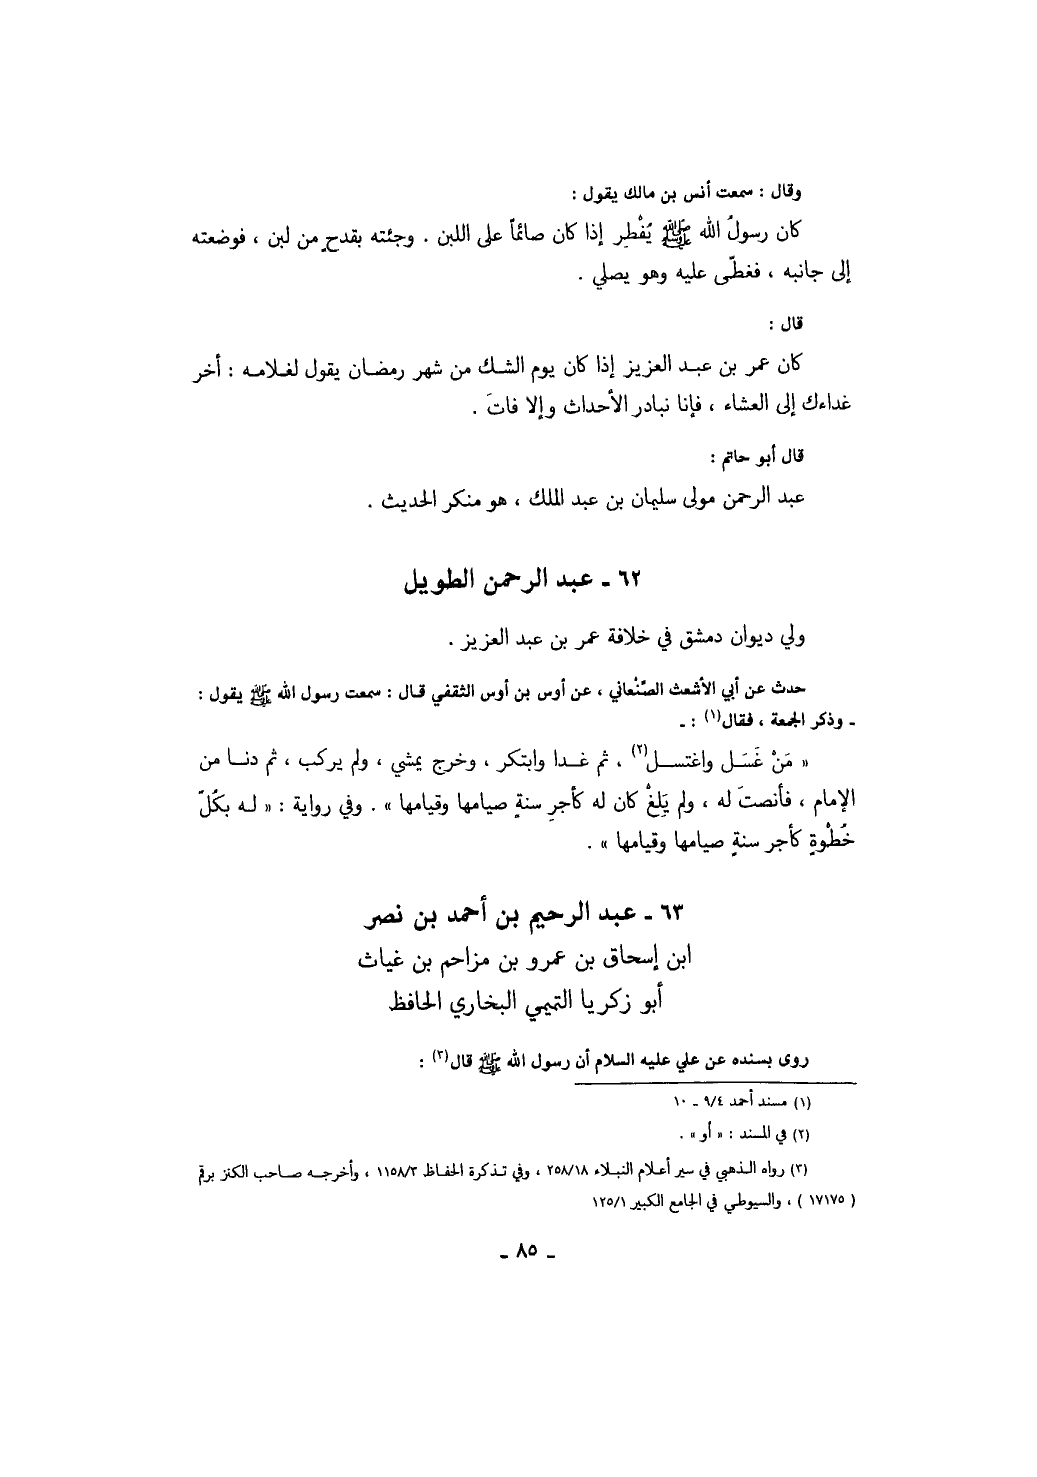 وقال : سمعت أنس بن مالك يقول :
كان رسولُ الله ﷺ يُفْطِر إذا كان صائماً على اللبن . وجئته بقدحٍ من لبن ، فوضعته
إلى جانبه ، فغطّى عليه وهو يصلي .
قال :
كان عمر بن عبد العزيز إذا كان يوم الشك من شهر رمضان يقول لغلامه : أخر
غداءك إلى العشاء ، فإنا نبادر الأحداث وإلا فاتَ .
قال أبو حاتم :
عبد الرحمن مولى سليمان بن عبد الملك ، هو منكر الحديث .
٦٢ ـ عبد الرحمن الطويل
ولي ديوان دمشق في خلافة عمر بن عبد العزيز .
حدث عن أبي الأشعث الصّنْعاني ، عن أوس بن أوس الثقفي قال : سمعت رسول الله ﷺ يقول :
ـ وذكر الجمعة ، فقال(١) : ـ
« مَنْ غَسَل واغتسل(٢) ، ثم غدا وابتكر ، وخرج يمشي ، ولم يركب ، ثم دنا من
الإمام ، فأنصتَ له ، ولم يَلِغْ كان له كأجرِ سنةٍ صيامها وقيامها » . وفي رواية : « له بكُلّ
خُطْوةٍ كأجر سنةٍ صيامها وقيامها » .
٦٣ ـ عبد الرحيم بن أحمد بن نصر
ابن إسحاق بن عمرو بن مزاحم بن غياث
أبو زكريا التميمي البخاري الحافظ
روى بسنده عن علي عليه السلام أن رسول الله ﷺ قال(٣) :
(١) مسند أحمد ٩/٤ ـ ١٠
(٢) في المسند : « أو » .
(٣) رواه الذهبي في سير أعلام النبلاء ٢٥٨/١٨ ، وفي تذكرة الحفاظ ١١٥٨/٣ ، وأخرجه صاحب الكنز برقم
( ١٧١٧٥ ) ، والسيوطي في الجامع الكبير ١٢٥/١
ـ ٨٥ ـ